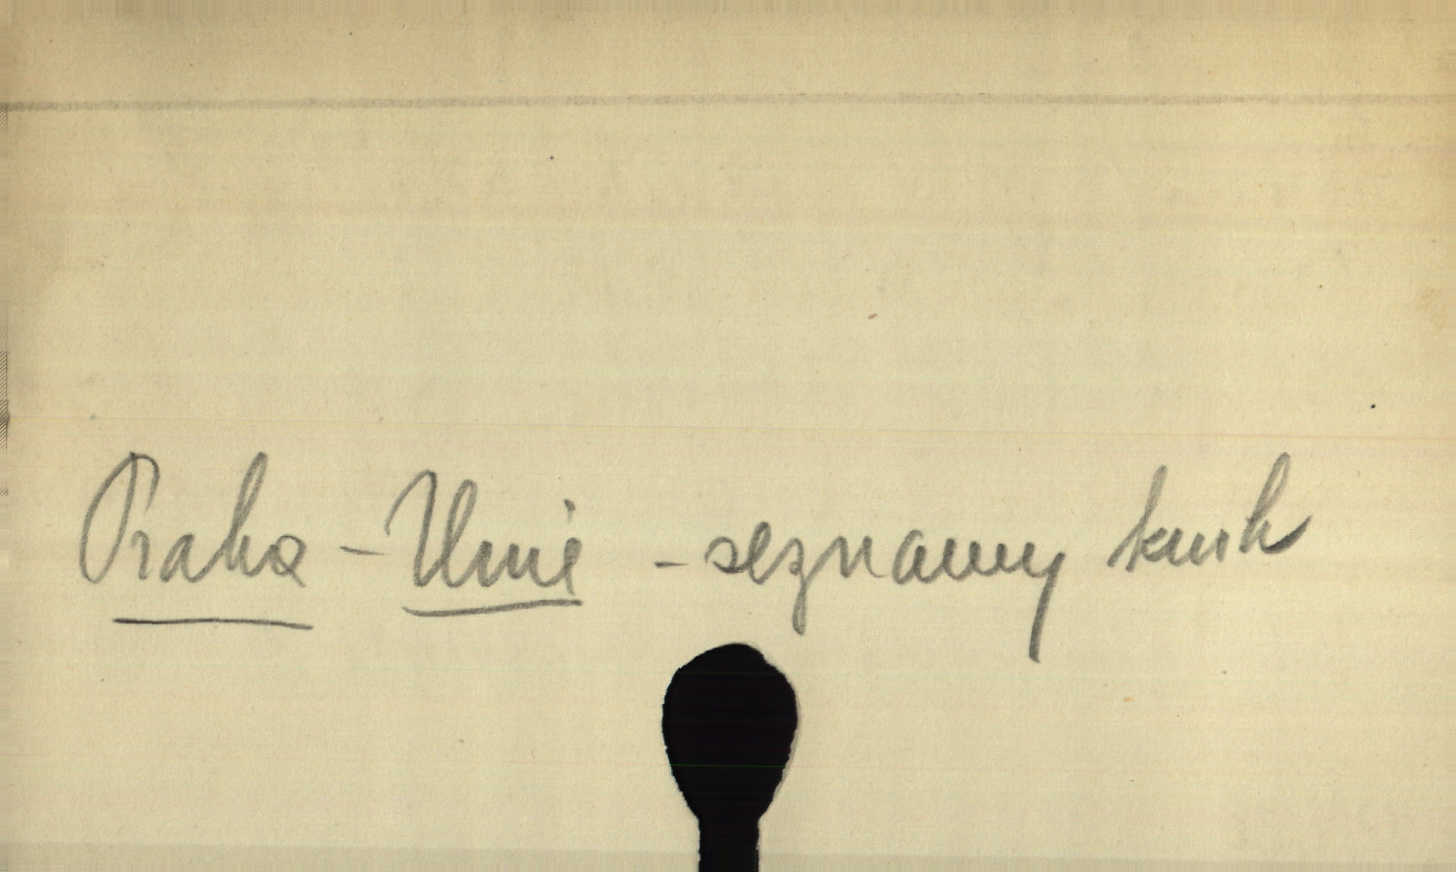 Praha - Unie - seznamy knih